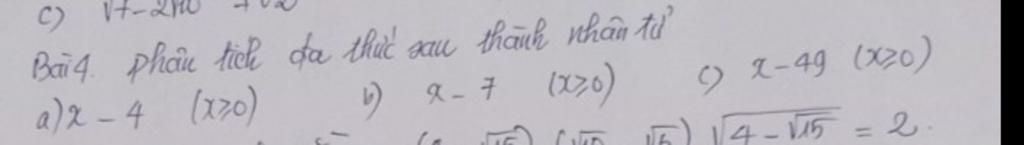 c) √7-2√10 +√2
Bài 4. phân tích đa thức sau thành nhân tử
a) x - 4 (x≥0) b) x - 7 (x≥0) c) x - 49 (x≥0)
√15) (√10 √6) √4-√15 = 2.